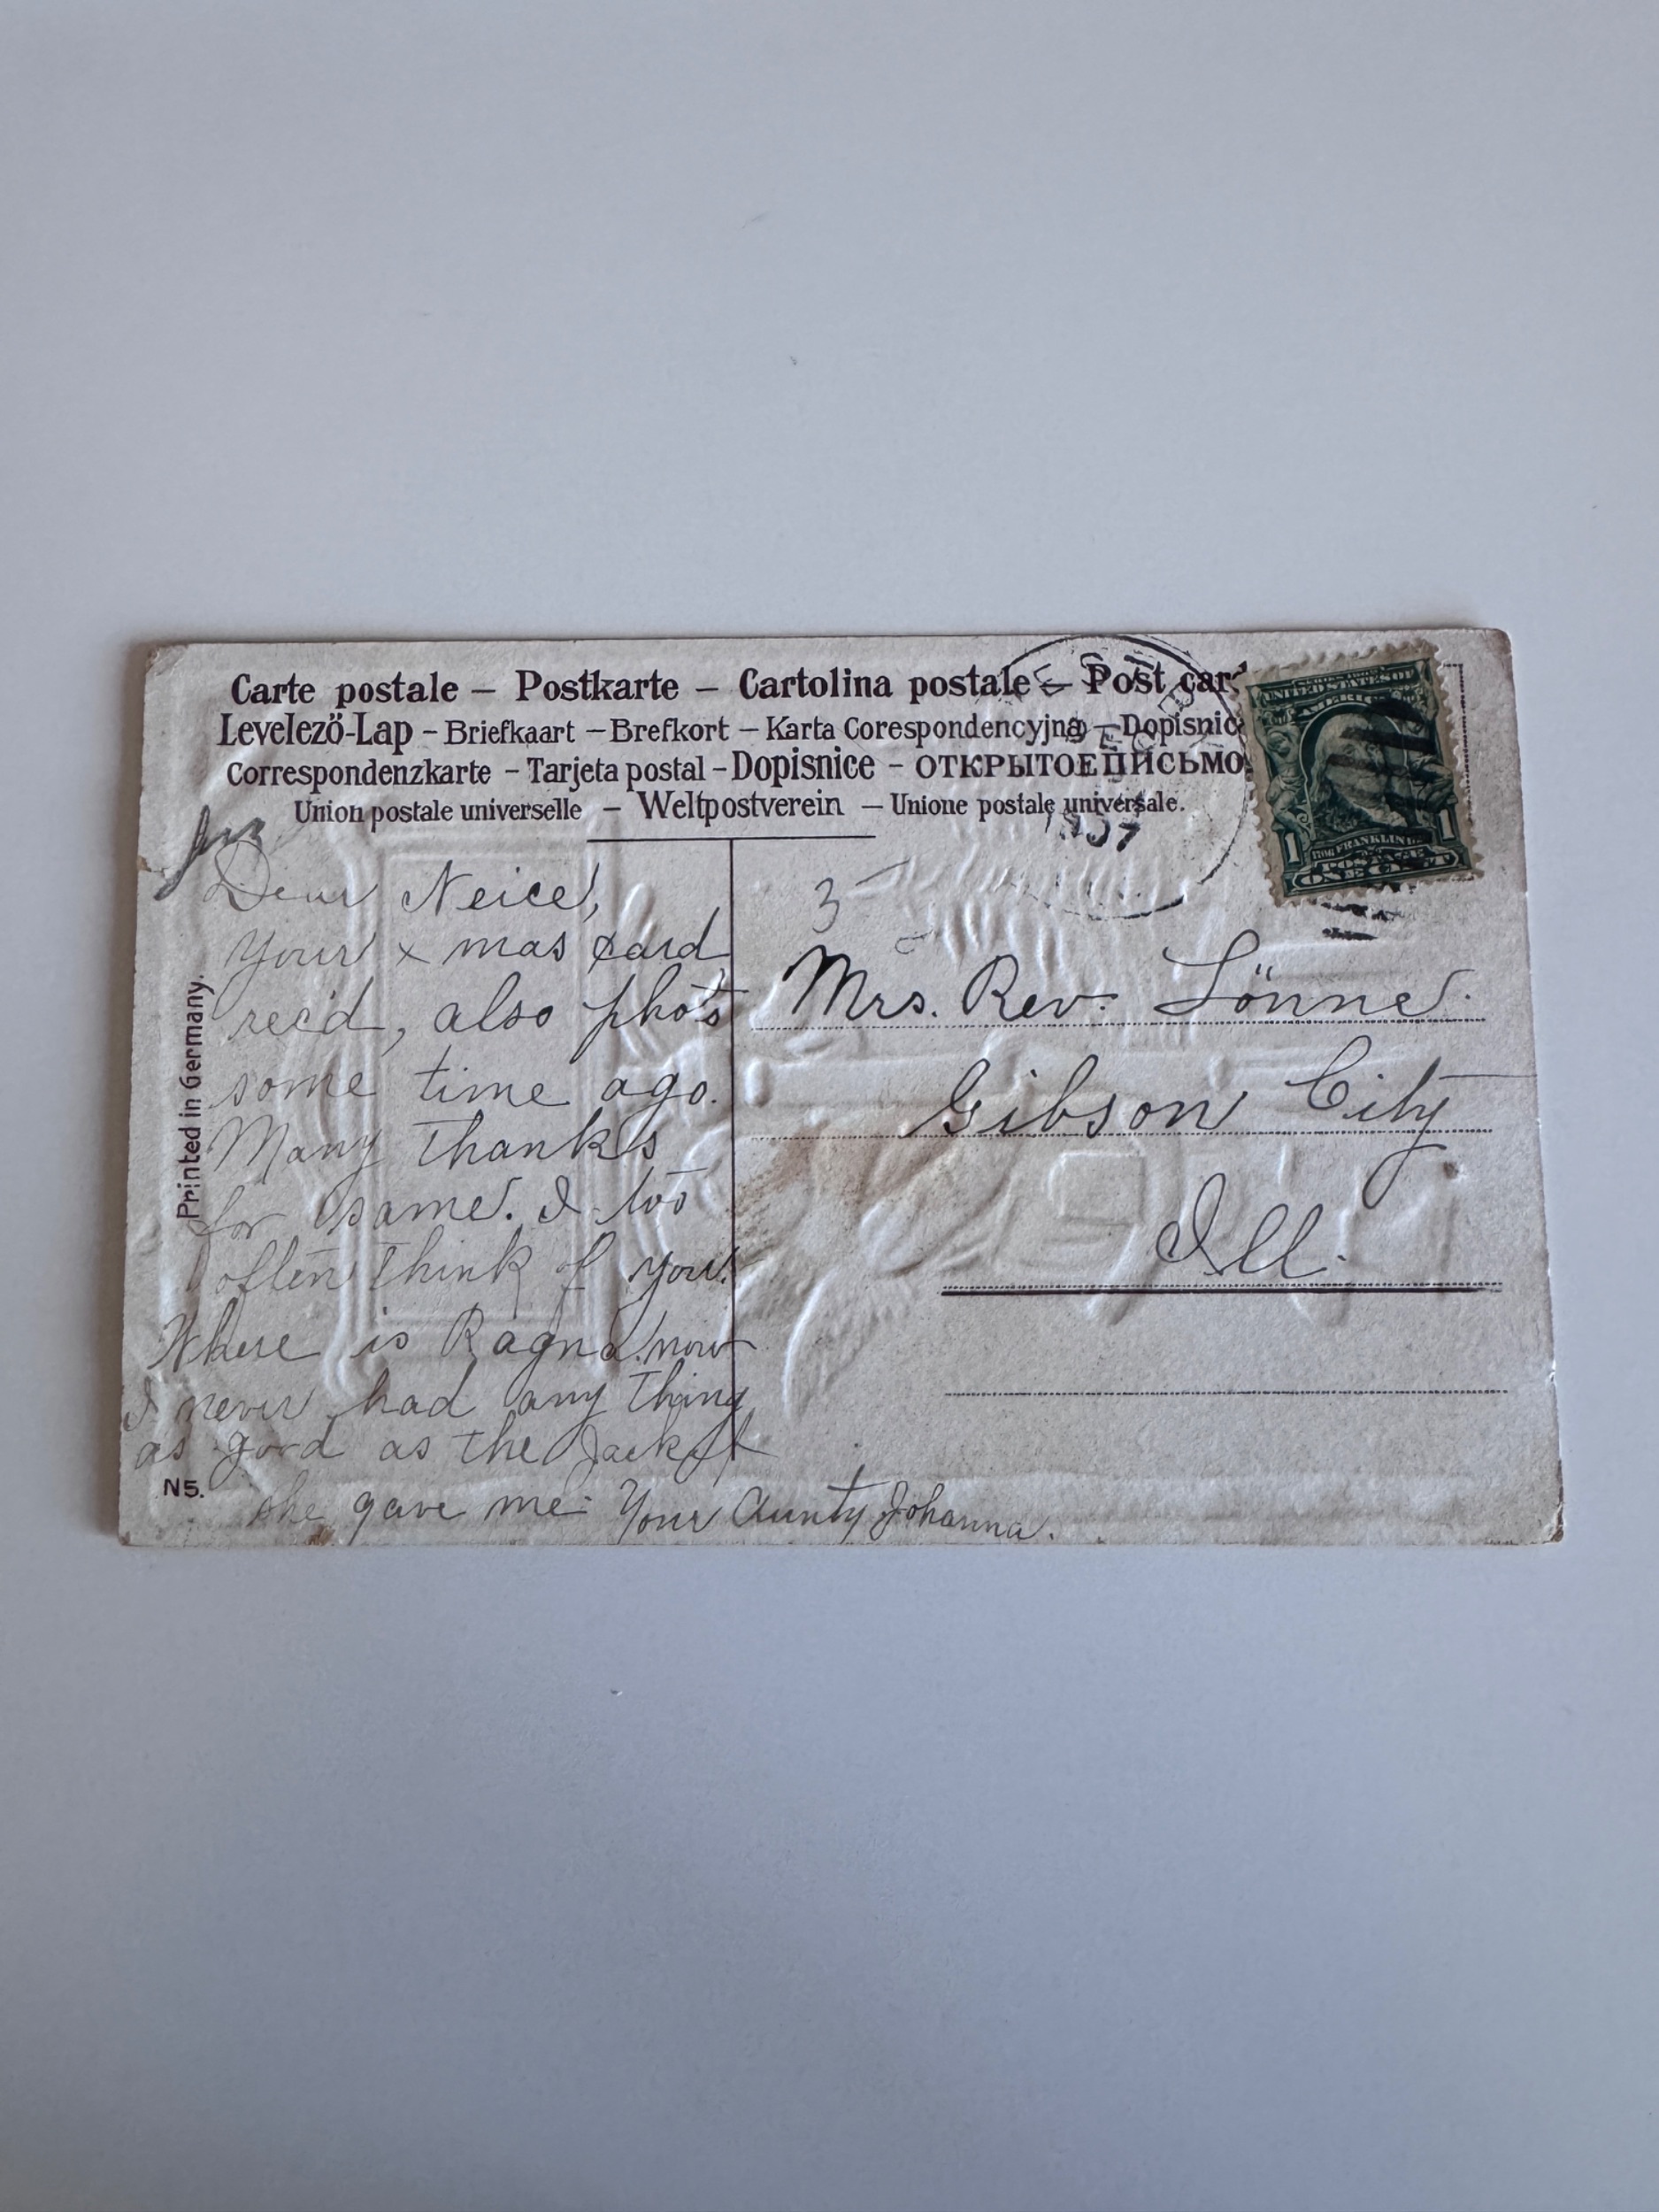 Carte postale – Postkarte – Cartolina postale – Post card
Levelezö-Lap – Briefkaart – Brefkort – Karta Corespondencyjna – Dopisnic
Correspondenzkarte – Tarjeta postal – Dopisnice – ОТКРЫТОЕПИСЬМО
Union postale universelle – Weltpostverein – Unione postale universale.
UNITED STATES OF
AMERICA
FRANKLIN
POSTAGE
1 ONE CENT 1
Dear Neice,
Your x mas card
rec'd, also photo
some time ago.
Many thanks
for same. I too
often think of you.
Where is Ragna now
I never had any thing
as good as the Jacket
she gave me. Your Aunty Johanna.
3
Mrs. Rev. Lönne.
Gibson City
Ill.
Printed in Germany.
N5.